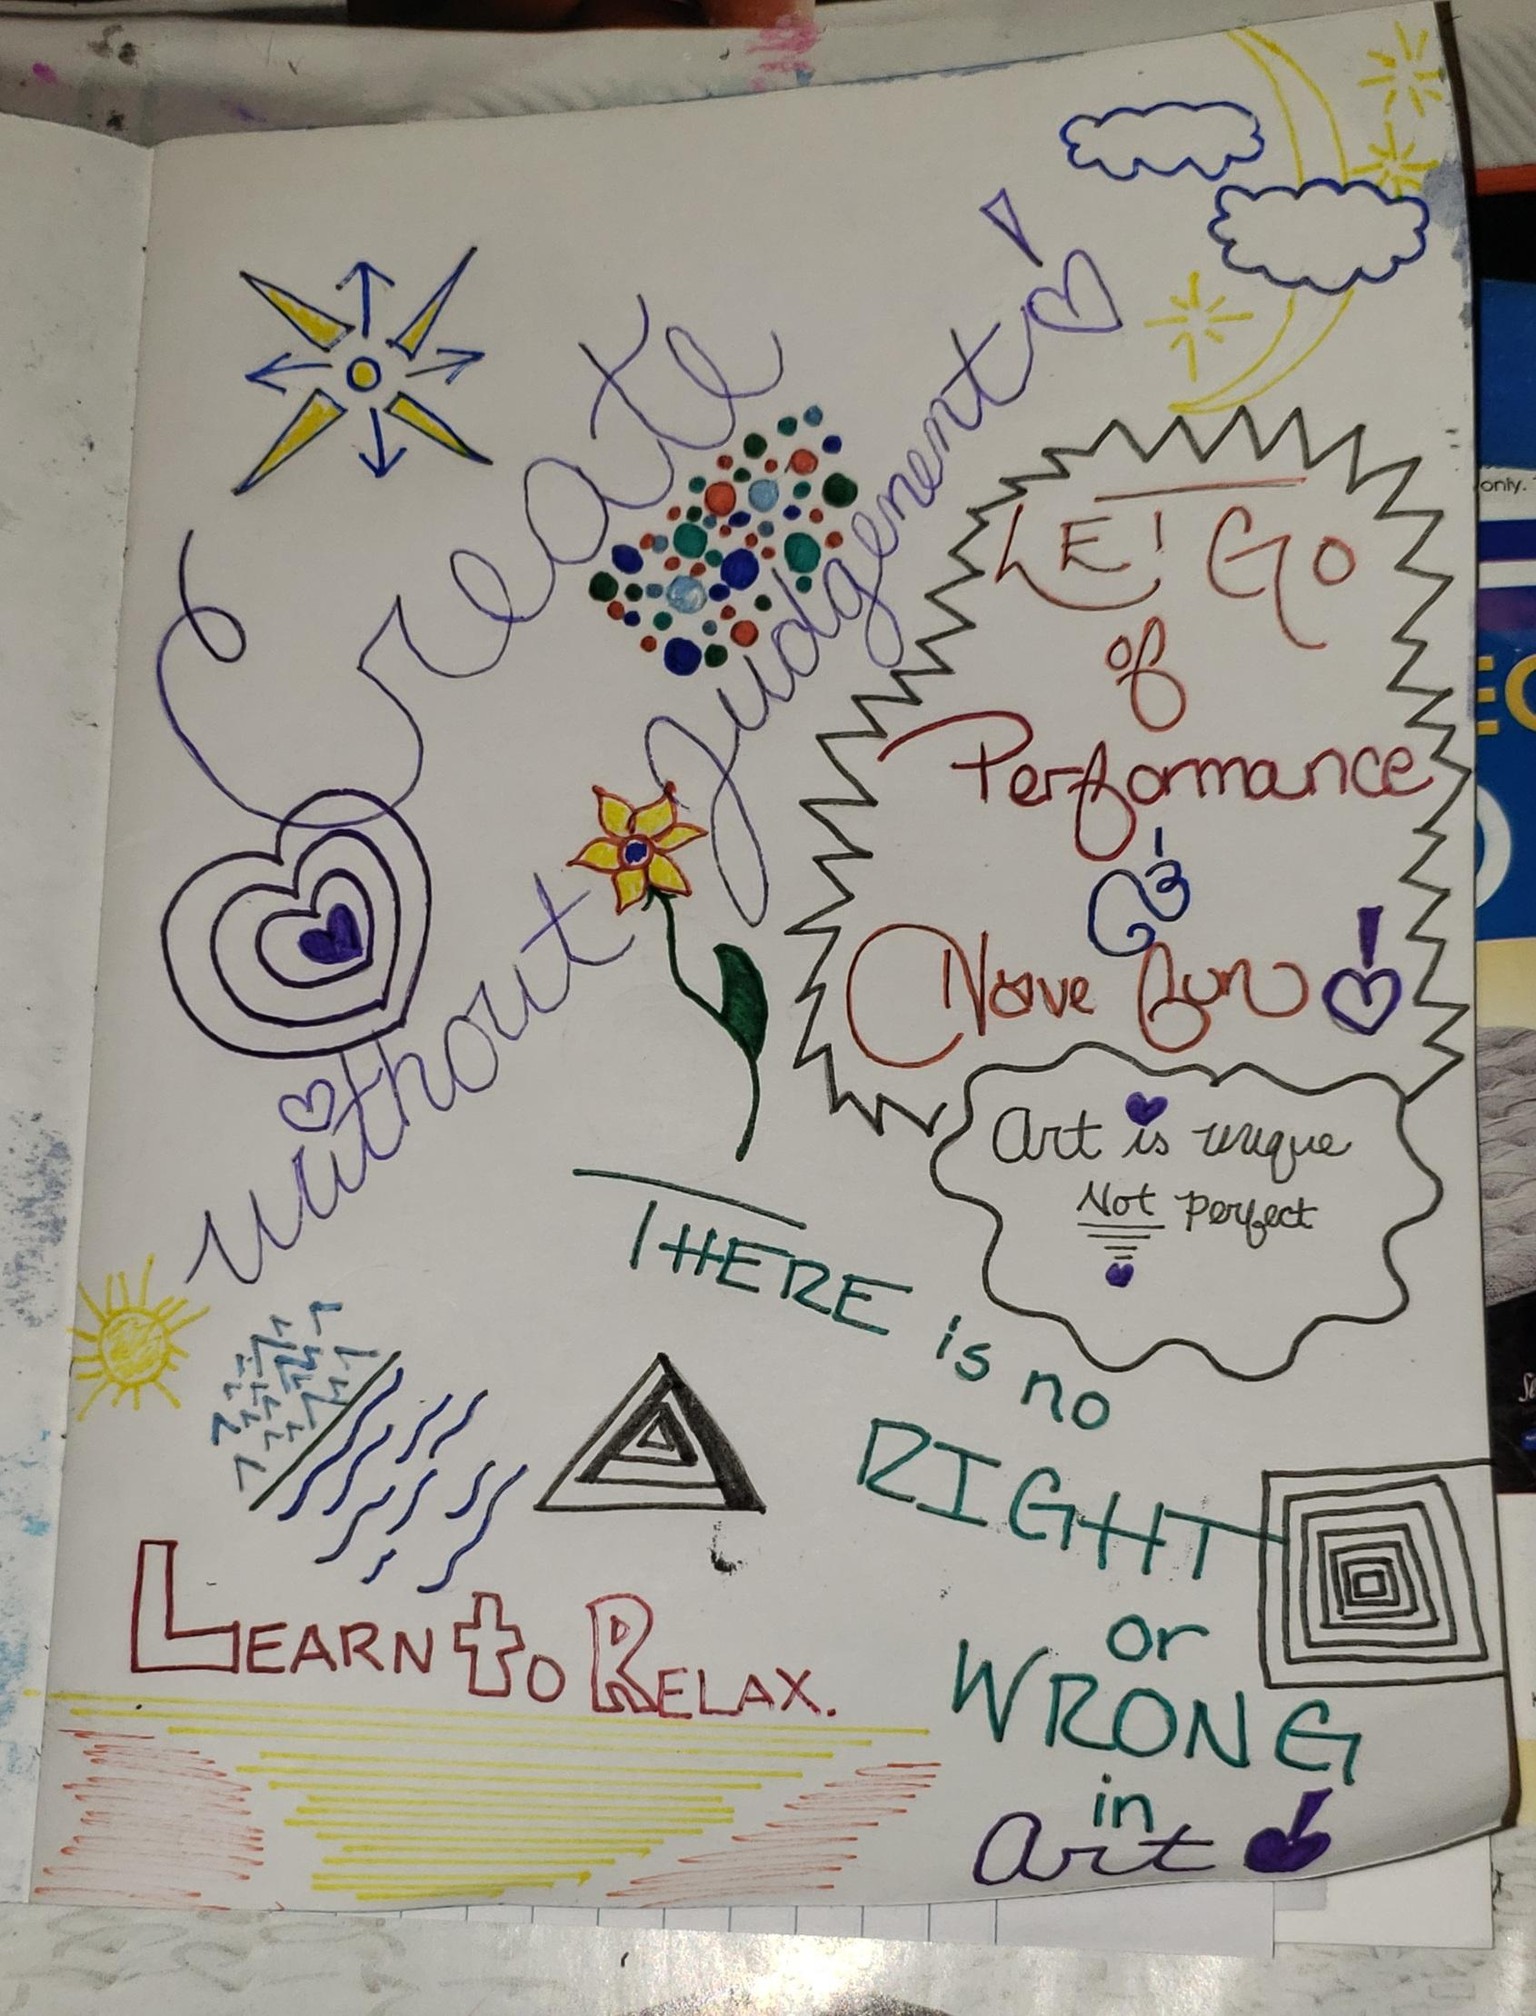 Create
without Judgement!
LET GO
of
Performance
&
Have fun!
Art is unique
Not perfect
THERE is no
RIGHT
or
WRONG
in
Art!
LEARN to RELAX.
only.